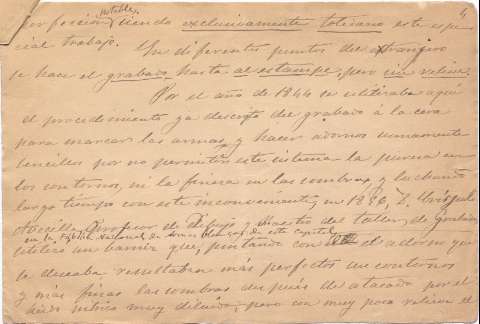 4
notable,
porporción, siendo exclusivamente toledano este espe-
cial trabajo. En diferentes puntos del extranjero
se hace el grabado, hasta al estampe, pero sin relieve.
Por el año de 1844 se utilizaba aquí
el procedimiento ya descrito del grabado á la cera
para marcar las armas, y hacer adornos sumamente
sencillos por no permitir este sistema la pureza en
los contornos, ni la fineza en las sombras, y luchando
largo tiempo con este inconveniente, en 18 D.
Profesor de Dibujo y Maestro del taller de grabador
en la Fábrica Nacional de Armas blancas de esta capital
utilizó un barniz que, pintando con el adorno que
se deseaba resultaban más perfectos sus contornos
y más finas las sombras después de atacado por el
ácido nítrico muy diluido, pero con muy poco relieve el